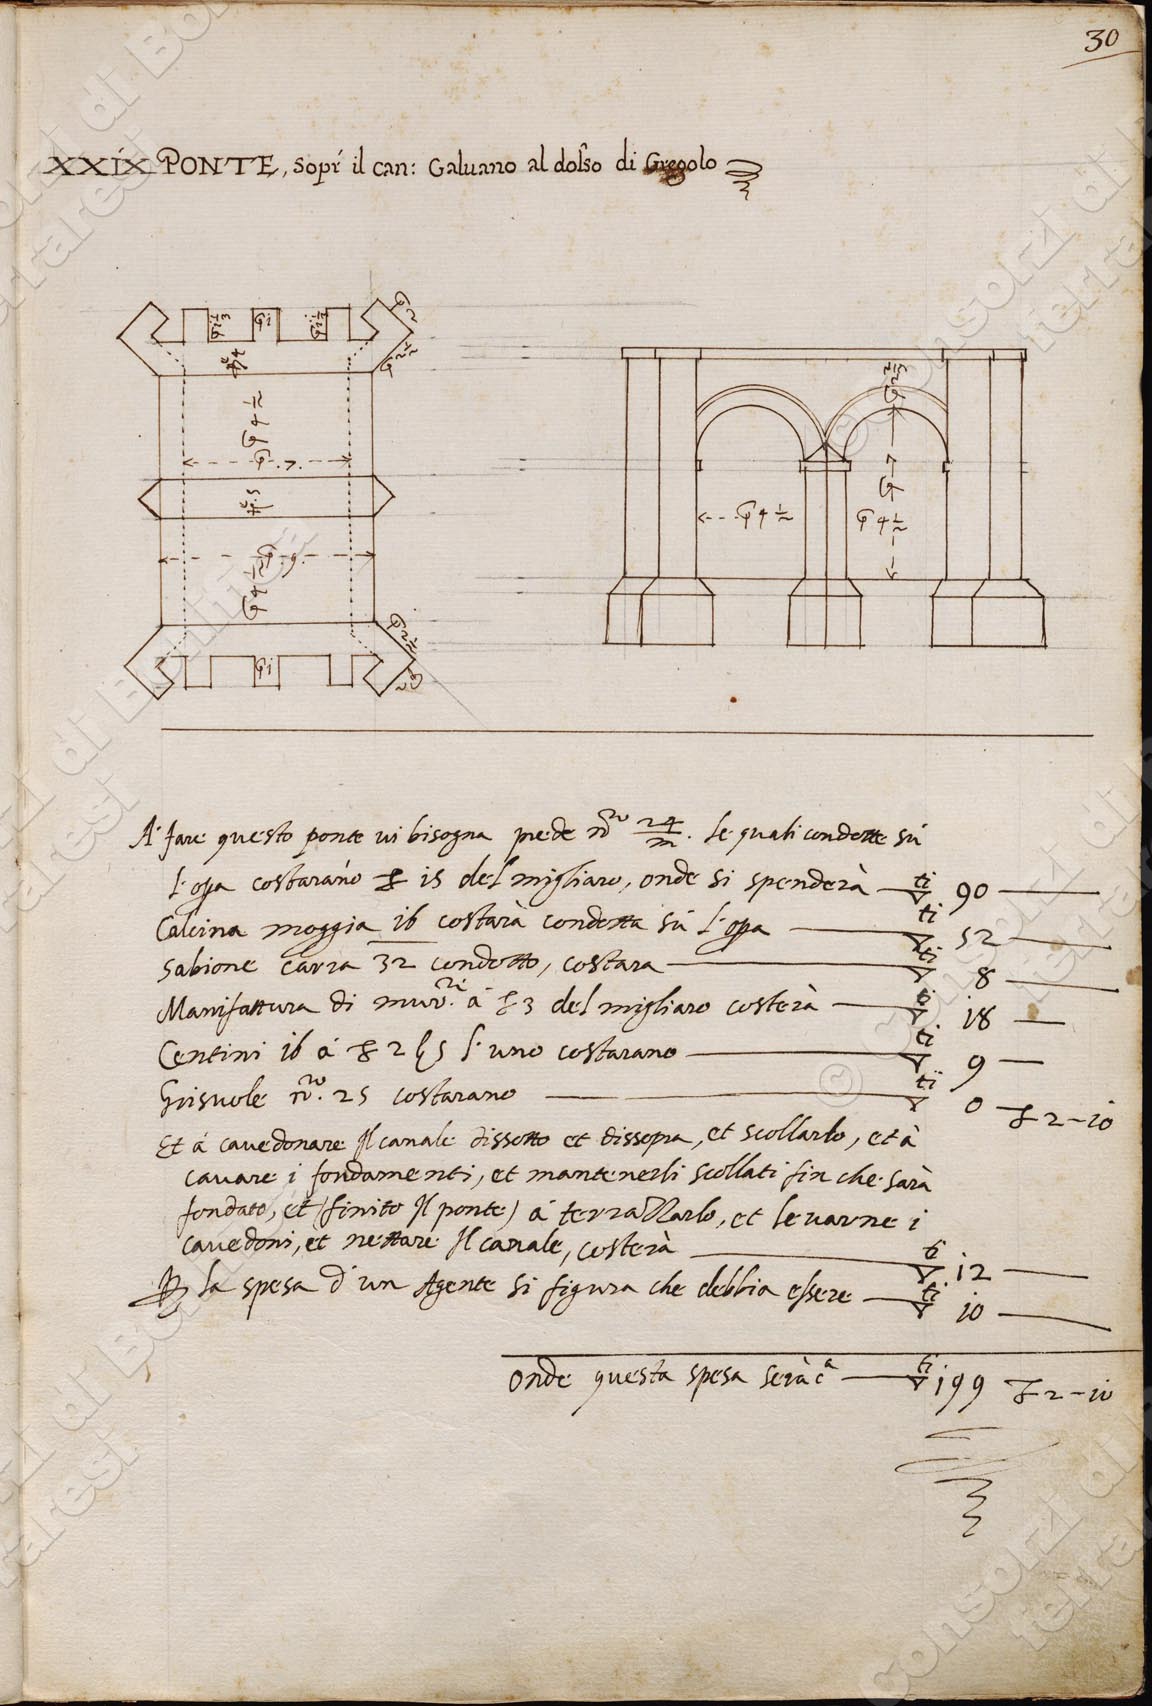 30
XXIX PONTE, sopr' il can: Galuano al dosso di Gregolo
A' fare questo ponte vi bisogna prede n.ro 24/m. le quali condotte sú
l'opa costaranno £ 15 del migliaro, onde si spenderà ▽ti 90
Calcina moggia 16 costarà condotta sú l'opa ▽ti 52
Sabione carra 32 condotto, costara ▽ti 8
Manifattura di mur.re á £ 3 del migliaro costerà ▽ti 18
Centini 16 á £ 2 ß 5 l'uno costarano ▽ti 9
Grisuole n.ro 25 costarano ▽ti 0 £ 2-10
Et á cavedonare il canale dissotto et dissopra, et scollarlo, et à
cavare i fondamenti, et mantenerli scollati fin che sarà
fondato, et (finito il ponte) á terrallarlo, et levarne i
cavedoni, et nettare il canale, costerà ▽ti 12
Per la spesa d'un Agente si figura che debbia essere ▽ti 10
Onde questa spesa serà cª ▽ti 199 £ 2-10